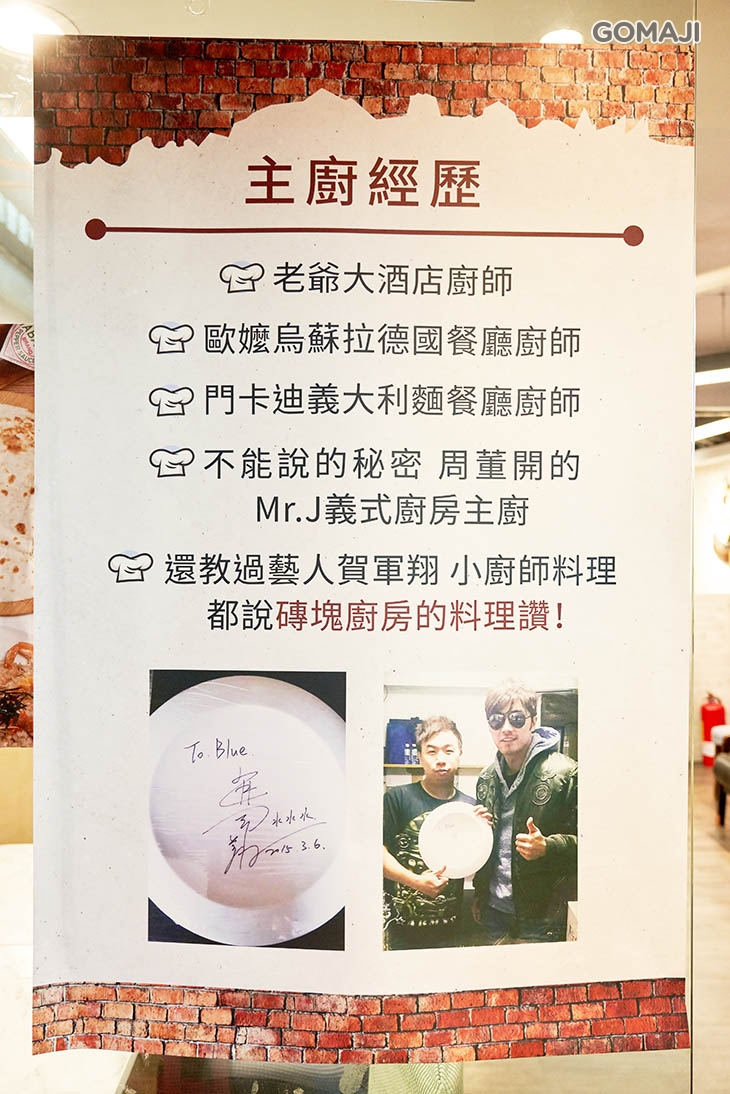 GOMAJI
主廚經歷
老爺大酒店廚師
歐嬤烏蘇拉德國餐廳廚師
門卡迪義大利麵餐廳廚師
不能說的秘密 周董開的
Mr.J義式廚房主廚
還教過藝人賀軍翔 小廚師料理
都說磚塊廚房的料理讚!
To. Blue.
2015.3.6.